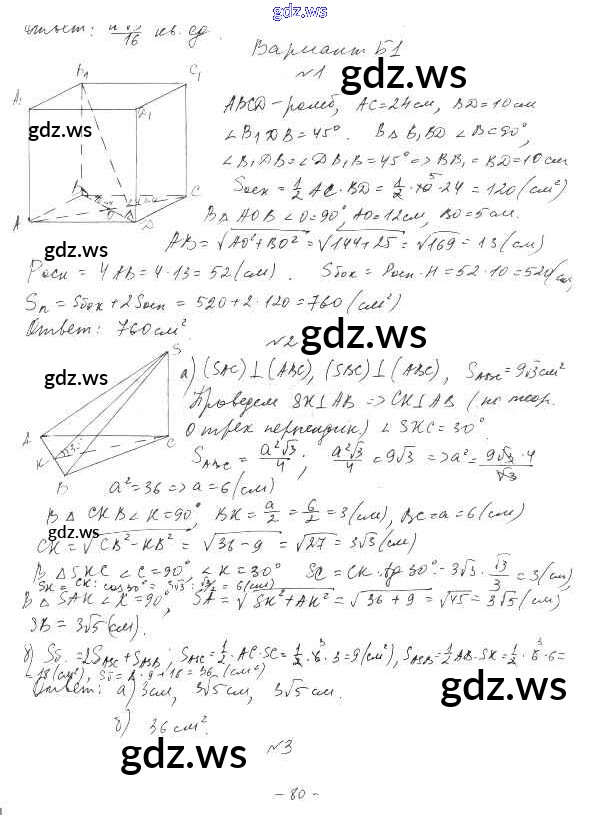 gdz.ws
ответ: /16 кв. ед.
Вариант Б1
№1
ABCD – ромб, AC = 24 см, BD = 10 см
∠B₁DB = 45°. В △ B₁BD ∠B = 90°,
∠B₁DB = ∠DB₁B = 45° => BB₁ = BD = 10 см
Sосн = 1/2 AC · BD = 1/2 · 10 · 24 = 120 (см²)
В △ AOB ∠O = 90°, AO = 12 см, BO = 5 см.
AB = √(AO² + BO²) = √(144 + 25) = √169 = 13 (см)
Pосн = 4AB = 4 · 13 = 52 (см). Sбок = Pосн · H = 52 · 10 = 520 (см²)
Sп = Sбок + 2Sосн = 520 + 2 · 120 = 760 (см²)
Ответ: 760 см².
№2
а) (SAC) ⊥ (ABC), (SBC) ⊥ (ABC), S ABC = 9√3 см²
Проведем SK ⊥ AB => CK ⊥ AB (по теор.
о трех перпендик) ∠SKC = 30°.
S ABC = a²√3/4; a²√3/4 = 9√3 => a² = 9√3 · 4/√3
a² = 36 => a = 6 (см)
В △ CKB ∠K = 90°, BK = a/2 = 6/2 = 3 (см), BC = a = 6 (см)
CK = √(CB² − KB²) = √(36 − 9) = √27 = 3√3 (см)
В △ SKC ∠C = 90° ∠K = 30° SC = CK · tg 30° = 3√3 · √3/3 = 3 (см)
SK = CK : cos 30° = 3√3 : √3/2 = 6 (см)
В △ SAK ∠K = 90°, SA = √(SK² + AK²) = √(36 + 9) = √45 = 3√5 (см)
SB = 3√5 (см).
б) Sб. = 2S ASC + S ASB; S ASC = 1/2 · AC · SC = 1/2 · 6 · 3 = 9 (см²), S ASB = 1/2 AB · SK = 1/2 · 6 · 6 =
= 18 (см²), Sб = 2 · 9 + 18 = 36 (см²)
Ответ: а) 3 см, 3√5 см, 3√5 см.
б) 36 см².
№3
– 80 –
A₁
B₁
C₁
D₁
A
B
C
D
O
S
A
K
B
C
gdz.ws
gdz.ws
gdz.ws
gdz.ws
gdz.ws
gdz.ws
gdz.ws
gdz.ws